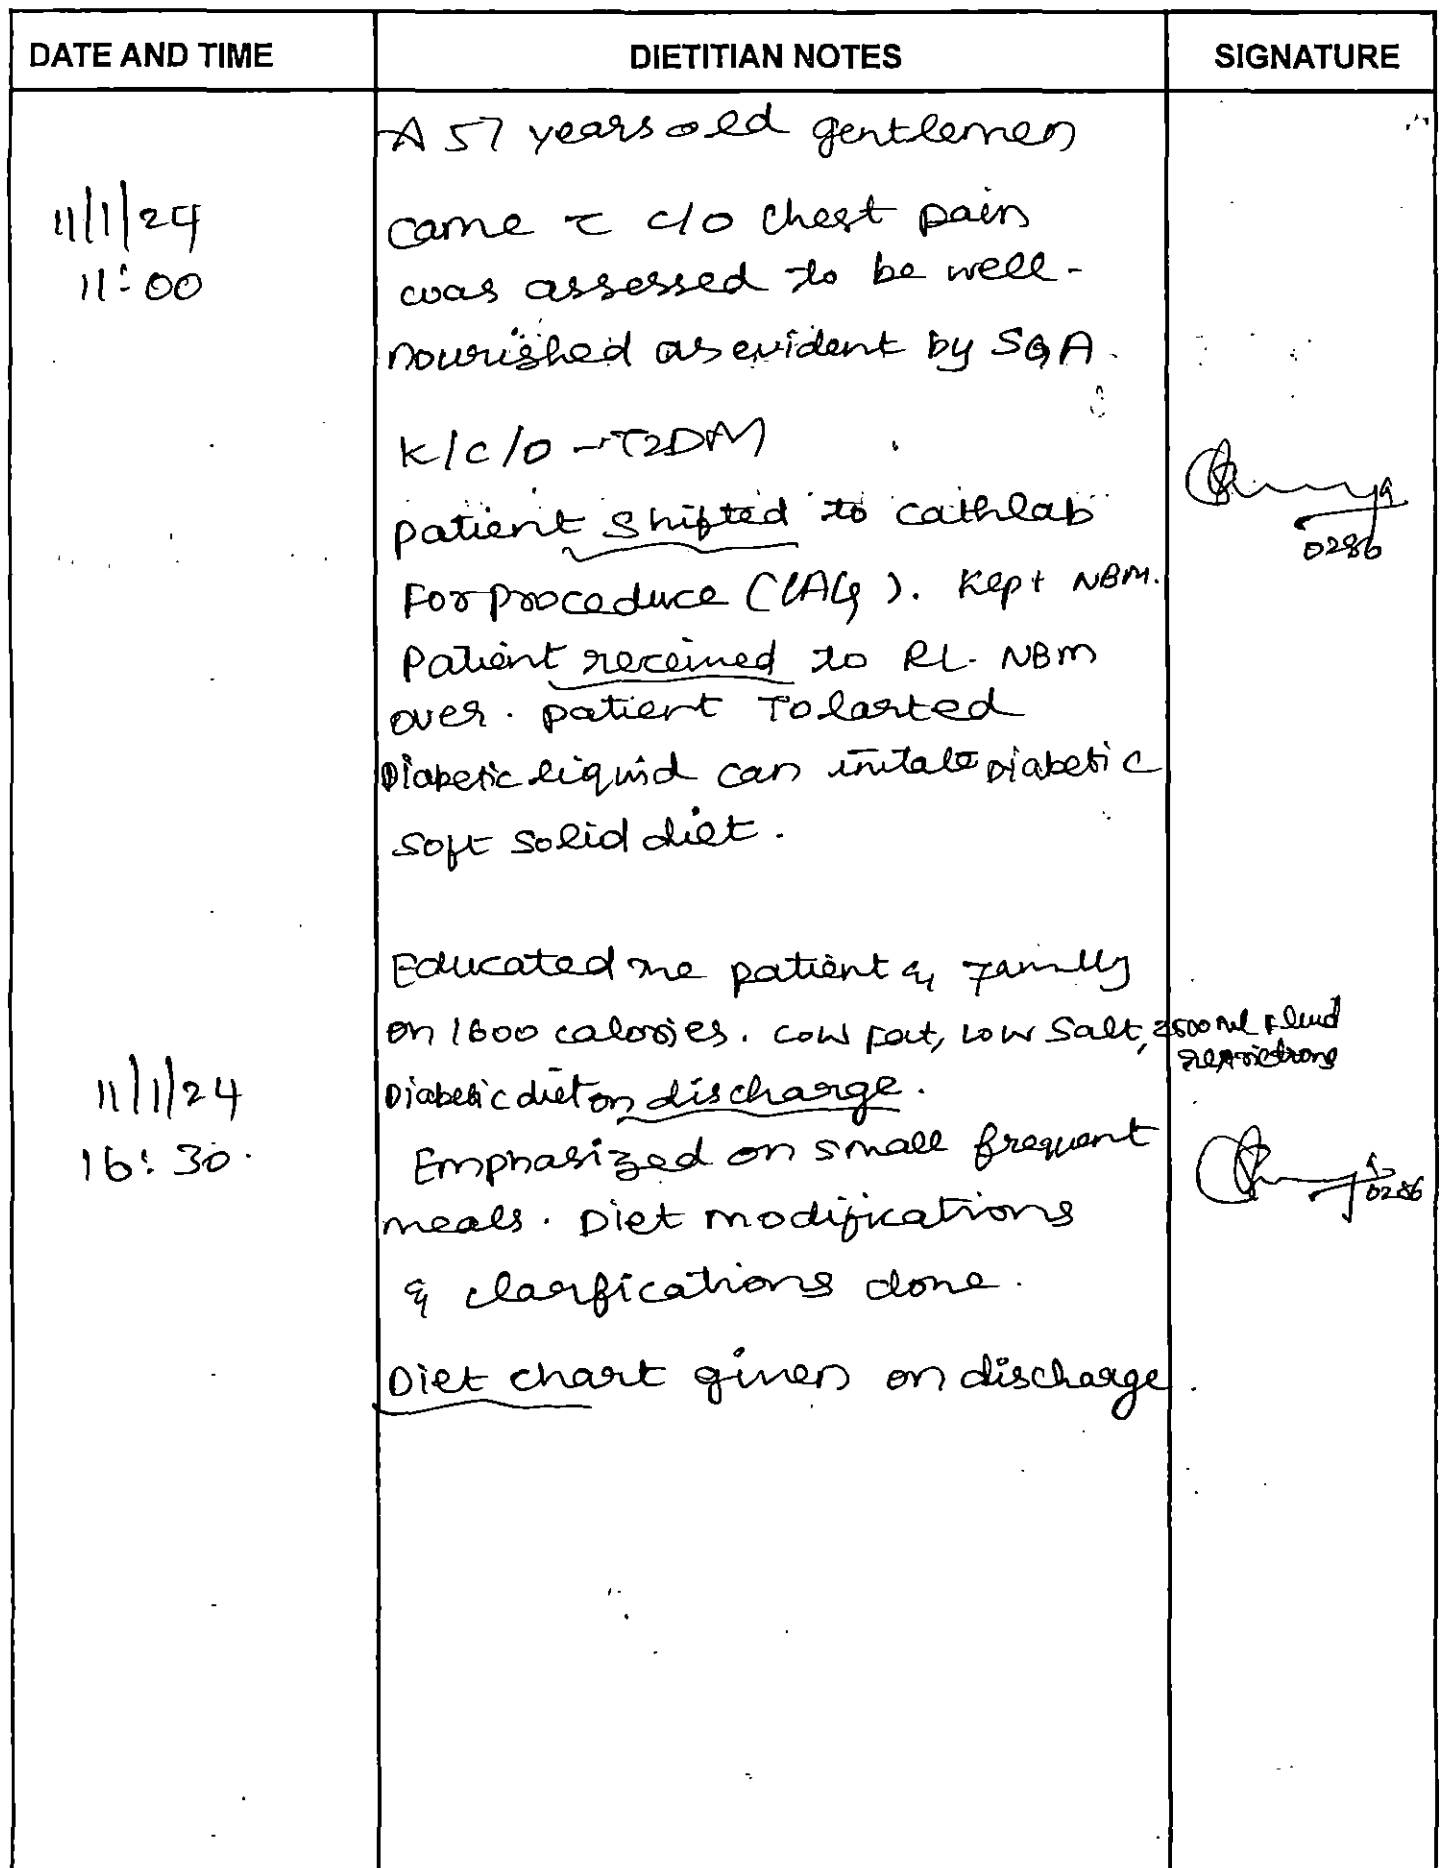 DATE AND TIME DIETITIAN NOTES SIGNATURE
A 57 years old gentlemen
11/1/24 came c c/o chest pain
11:00 was assessed to be well-
nourished as evident by SGA.
K/c/o - T2DM
patient shifted to cathlab
For procedure (CAG). Kept NBM.
0286
Patient received to RL. NBM
over. patient Tolarted
Diabetic liquid can initate Diabetic
soft solid diet.
Educated the patient & family
on 1600 calories. Low fat, low salt, 2500 ml fluid
restrictions
11/1/24 Diabetic diet on discharge.
16:30. Emphasized on small frequent
0286
meals. Diet modifications
& clarfications done.
Diet chart given on discharge.